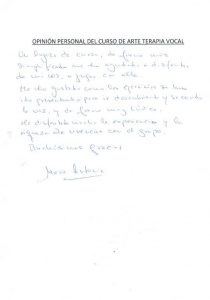 OPINIÓN PERSONAL DEL CURSO DE ARTE TERAPIA VOCAL
de curso, de forma
me ha ayudado a disfrutar
de mi voz, a jugar con ella.
Me ha gustado como los ejercicios se han
ir descubriendo y sacando
la voz, y de forma muy lúdica.
He disfrutado mucho la experiencia y la
riqueza de vivencias con el grupo.
Muchísimas gracias